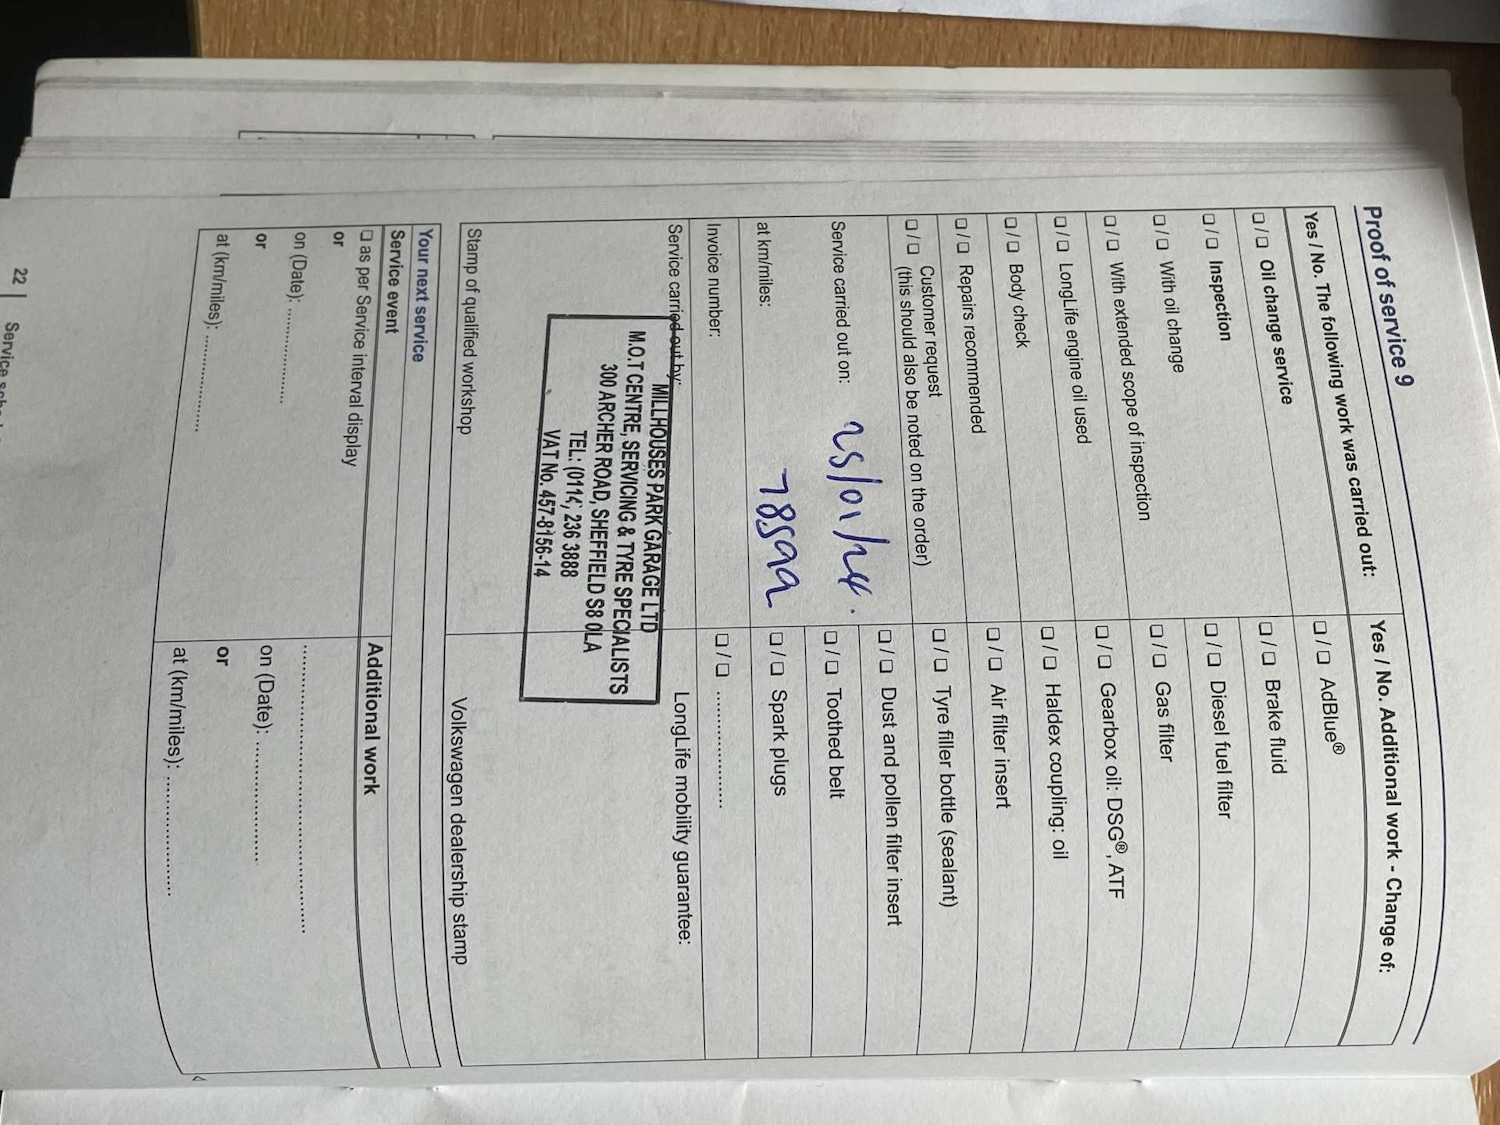 Proof of service 9
Yes / No. The following work was carried out:
❑ / ❑ Oil change service
❑ / ❑ Inspection
❑ / ❑ With oil change
❑ / ❑ With extended scope of inspection
❑ / ❑ LongLife engine oil used
❑ / ❑ Body check
❑ / ❑ Repairs recommended
❑ / ❑ Customer request
(this should also be noted on the order)
Yes / No. Additional work - Change of:
❑ / ❑ AdBlue®
❑ / ❑ Brake fluid
❑ / ❑ Diesel fuel filter
❑ / ❑ Gas filter
❑ / ❑ Gearbox oil: DSG®, ATF
❑ / ❑ Haldex coupling: oil
❑ / ❑ Air filter insert
❑ / ❑ Tyre filler bottle (sealant)
❑ / ❑ Dust and pollen filter insert
❑ / ❑ Toothed belt
❑ / ❑ Spark plugs
❑ / ❑ ....................
Service carried out on: 25/01/24.
at km/miles: 78599
Invoice number:
Service carried out by:
MILLHOUSES PARK GARAGE LTD
M.O.T CENTRE, SERVICING & TYRE SPECIALISTS
300 ARCHER ROAD, SHEFFIELD S8 0LA
TEL: (0114) 236 3888
VAT No. 457-8156-14
Stamp of qualified workshop
LongLife mobility guarantee:
Volkswagen dealership stamp
Your next service
Service event
❑ as per Service interval display
or
on (Date): ....................
or
at (km/miles): ....................
Additional work
........................................
on (Date): ....................
or
at (km/miles): ....................
22 | Service